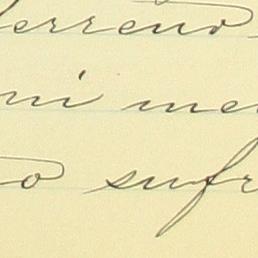 erreno
ni me
o sufr